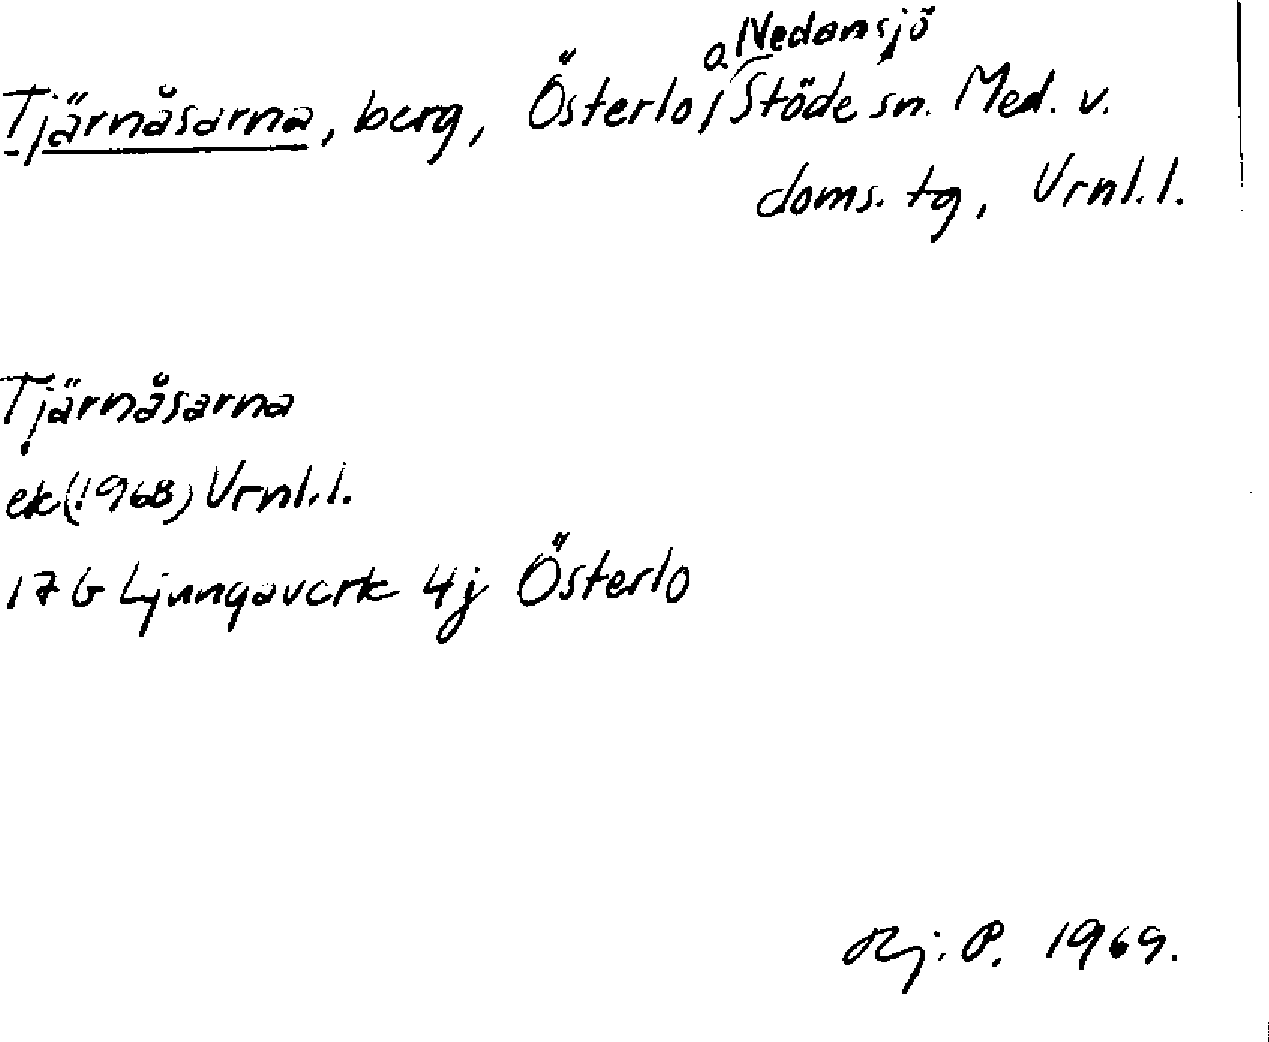 Tjärnåsarna, berg, Österlo, o. Nedansjö Stöde sn. Med. v.
doms. tg, Vrnl.l.
Tjärnåsarna
ek (1968) Vrnl.l.
17 G Ljungaverk 4j Österlo
Rj. P. 1969.